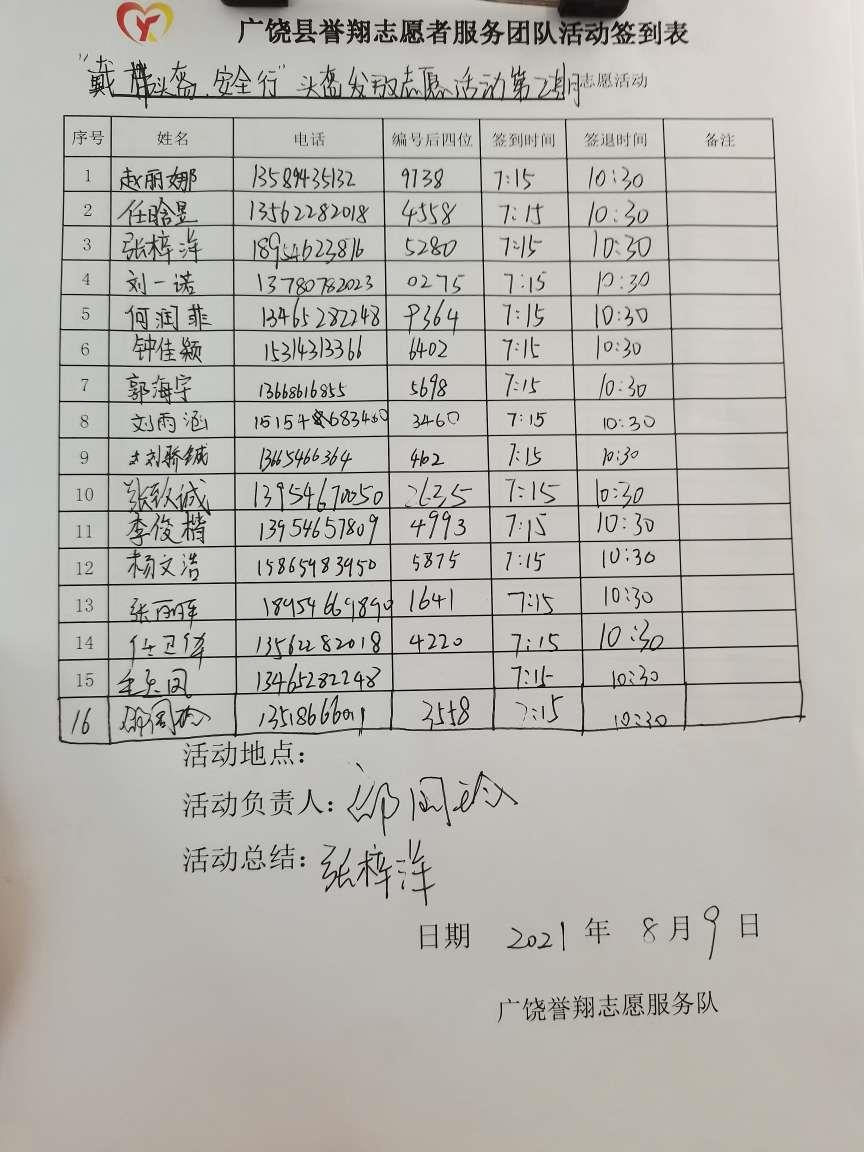 广饶县誉翔志愿者服务团队活动签到表
"戴头盔.安全行"头盔发放志愿活动第2期志愿活动
序号 姓名 电话 编号后四位 签到时间 签退时间 备注
1 赵丽娜 13589435132 9738 7:15 10:30
2 任晗昱 13562282018 4558 7:15 10:30
3 张梓洋 18954623816 5280 7:15 10:30
4 刘一诺 13780782023 0275 7:15 10:30
5 何润菲 13465282248 9364 7:15 10:30
6 钟佳颖 15314313366 6402 7:15 10:30
7 郭海宇 13668616855 5698 7:15 10:30
8 刘雨涵 15154683460 3460 7:15 10:30
9 刘骄铖 13665466364 402 7:15 10:30
10 张致诚 13954670050 2635 7:15 10:30
11 李俊楷 13954657809 4993 7:15 10:30
12 杨文浩 15865983950 5875 7:15 10:30
13 张丽军 18954669890 1641 7:15 10:30
14 任卫伟 13562282018 4220 7:15 10:30
15 13465282248 7:15 10:30
16 13518666011 3558 7:15 10:30
活动地点：
活动负责人：
活动总结：张梓洋
日期 2021 年 8 月 9 日
广饶誉翔志愿服务队